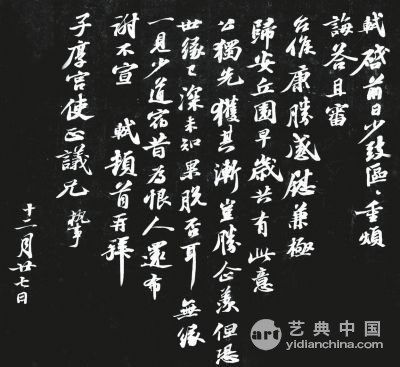 軾啓前日少致區區重煩
誨答且審
台候康勝感慰兼極
歸安丘園早歲共有此意
公獨先獲其漸豈勝企羨但恐
世緣已深未知果脫否耳無緣
一見少道宿昔為恨人還布
謝不宣 軾頓首再拜
子厚宮使正議兄 執事
十二月廿七日
art 艺典中国
yidianchina.com